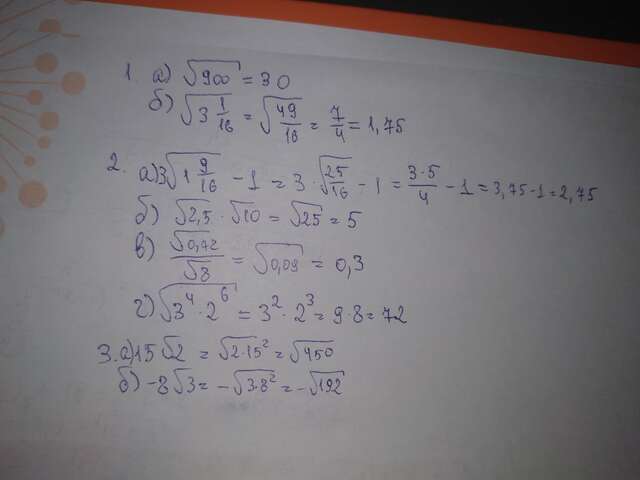 1. а) √900 = 30
б) √3 1/16 = √49/16 = 7/4 = 1,75
2. а) 3√1 9/16 - 1 = 3·√25/16 - 1 = 3·5/4 - 1 = 3,75-1 = 2,75
б) √2,5 · √10 = √25 = 5
в) √0,72/√8 = √0,09 = 0,3
г) √3⁴·2⁶ = 3²·2³ = 9·8 = 72
3. а) 15√2 = √2·15² = √450
б) -8√3 = -√3·8² = -√192